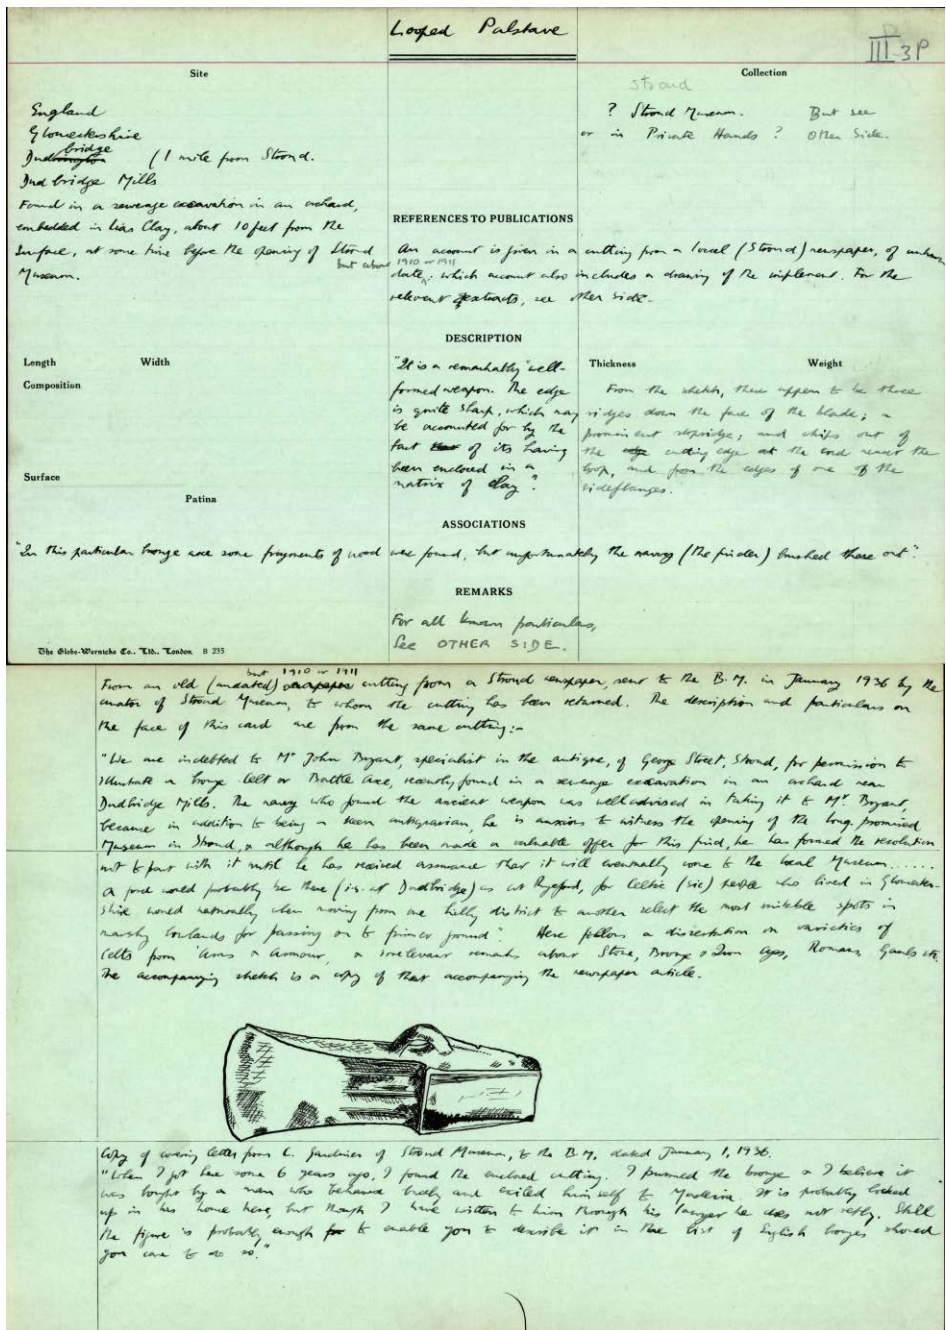 Looped Palstave
III 3P
Site
Collection
Stroud
England
Gloucestershire
bridge
Dudbrington (1 mile from Stroud.
Dudbridge Mills
Found in a sewerage excavation in an orchard,
embedded in Lias Clay, about 10 feet from the
Surface, at some time before the opening of Stroud
but about 1910 or 1911
Museum.
? Stroud Museum. But see
or in Private Hands? Other Side.
REFERENCES TO PUBLICATIONS
An account is given in a cutting from a local (Stroud) newspaper, of unknown
date, which account also includes a drawing of the implement. For the
relevant extracts, see other side.
DESCRIPTION
Length Width
Composition
Surface
Patina
"It is a remarkably well-
formed weapon. The edge
is quite sharp, which may
be accounted for by the
fact that of its having
been enclosed in a
matrix of clay".
Thickness Weight
From the sketch, there appear to be three
ridges down the face of the blade; a
prominent stopridge; and chips out of
the edge cutting edge at the end nearer the
loop, and from the edges of one of the
sideflanges.
ASSOCIATIONS
"In this particular bronze axe some fragments of wood were found, but unfortunately the navvy (the finder) brushed these out".
REMARKS
For all known particulars,
See OTHER SIDE.
The Globe-Wernicke Co., Ltd., London. B 235
but 1910 or 1911
From an old (undated) newspaper cutting from a Stroud newspaper, sent to the B.M. in January 1936 by the
curator of Stroud Museum, to whom the cutting has been returned. The description and particulars on
the face of this card are from the same cutting:-
"We are indebted to Mr John Bryant, specialist in the antique, of George Street, Stroud, for permission to
illustrate a bronze Celt or Battle Axe, recently found in a sewerage excavation in an orchard near
Dudbridge Mills. The navvy who found the ancient weapon was well advised in taking it to Mr. Bryant,
because in addition to being a keen antiquarian, he is anxious to witness the opening of the long promised
Museum in Stroud, & although he has been made a valuable offer for this find, he has formed the resolution
not to part with it until he has received assurance that it will eventually come to the local Museum......
A ford would probably be there (i.e. at Dudbridge) as at Ryeford, for Celtic (sic) people who lived in Gloucester-
shire would naturally when moving from one hilly district to another select the most suitable spots in
marshy lowlands for passing on to firmer ground". Here follows a dissertation on varieties of
Celts from 'Arms & Armour', & irrelevant remarks about Stone, Bronze & Iron Ages, Romans, Gauls etc.
The accompanying sketch is a copy of that accompanying the newspaper article.
Copy of covering letter from C. Gardiner of Stroud Museum, to the B.M. dated January 1, 1936.
"When I got here some 6 years ago, I found the enclosed cutting. I pursued the bronze & I believe it
was bought by a man who behaved badly and exiled himself to Madeira. It is probably locked
up in his home here, but though I have written to him through his lawyer he does not reply. Still
the figure is probably enough for to enable you to describe it in the list of English bronzes should
you care to do so."